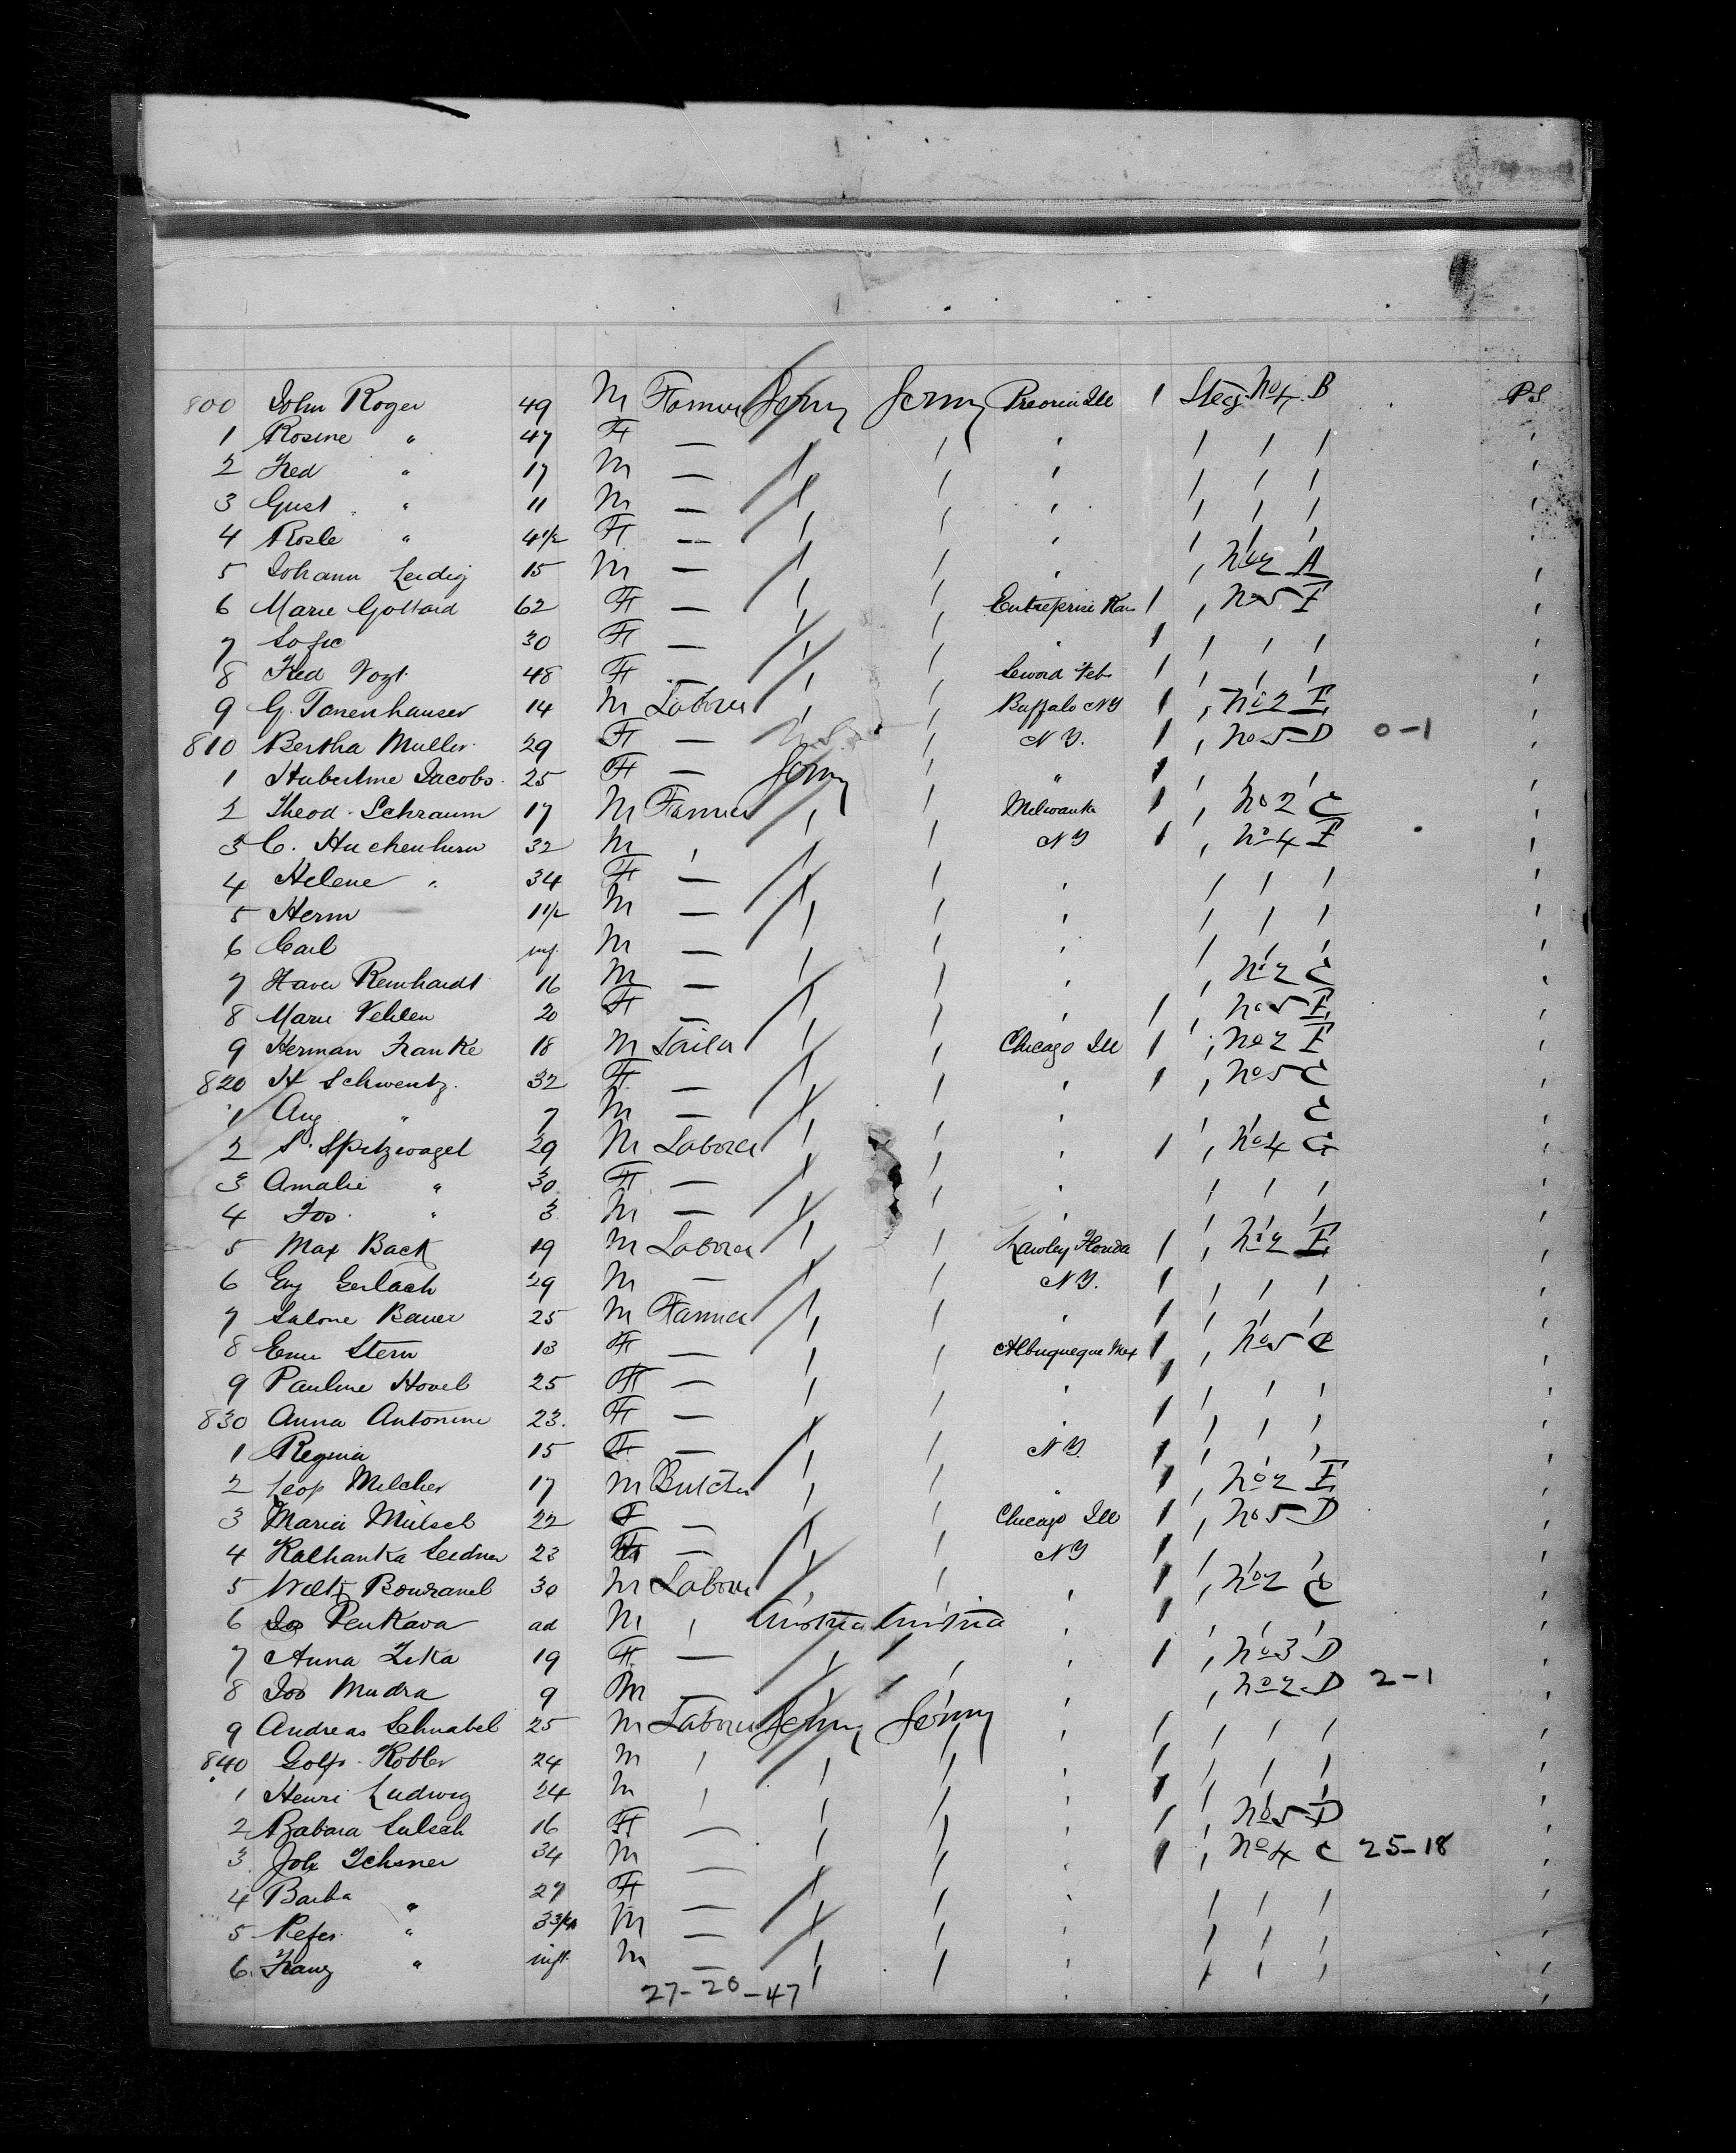 800 John Roger 49 M Farmer Germy Germy Preoria Ill 1 Steeg No 4 B PS
1 Rosine " 47 F —
2 Fred " 17 M —
3 Gust " 11 M —
4 Rosle " 4 1/2 F —
5 Johann Leidig 15 M — No 2 A
6 Marie Gottard 62 F — Enterprise Kan 1 No 5 E
7 Sofie 30 F — 1
8 Fred Vogt 48 F — Seword Neb 1
9 G. Tanenhauser 14 M Laborer Buffalo NY 1 No 2 E
810 Bertha Muller 29 F — N Y. 1 No 5 D 0-1
1 Hubertine Jacobs 25 F — Germy " 1
2 Theod. Schramm 17 M Farmer Milwauke 1 No 2 C
3 C. 32 M NY 1 No 4 E
4 Helene " 34 F —
5 Herm 1 1/2 M —
6 Carl inf. M —
7 Xaver Reinhardt 16 M — No 2 C
8 Marie Vehlen 20 F — 1 No 5 E
9 Herman Franke 18 M Tailor Chicago Ill 1 No 2 E
820 H Schwentz. 32 F — 1 No 5 C
1 Aug " 7 M — C
2 S. Spitzwagel 29 M Laborer 1 No 4 C
3 Amalie " 30 F —
4 Jos. " 3 M —
5 Max Back 19 M Laborer Lawley Florida 1 No 2 E
6 Eug Gerlach 29 M — N Y. 1
7 Salone Bauer 25 M Farmer 1
8 Emu Stern 13 F — Albuquegue Mex 1 No 5 C
9 Pauline Hovel 25 F — 1
830 Anna Antonine 23. F — 1
1 Regina 15 F — N Y. 1
2 Leop Melcher 17 M Butcher " 1 No 2 E
3 Maria Mülsel 22 F — Chicago Ill 1 No 5 D
4 Kathanka Leidner 23 F — NY 1
5 30 M Laborer 1 No 2 C
6 Jos Penkava ad M Austria Austria 1
7 Anna Zeka 19 F — 1 No 3 D
8 Jos Mudra 9 M — No 2 D 2-1
9 Andreas Schnabel 25 M Laborer Germy Germy 1
840 Kobler 24 M 1
1 Henri Ludwig 24 M 1
2 Babara 16 F — 1 No 5 D
3 Joh 34 M — 1 No 4 C 25-18
4 Barba " 27 F —
5 Peter " 3 3/4 M —
6. Franz " inft M —
27-20-47